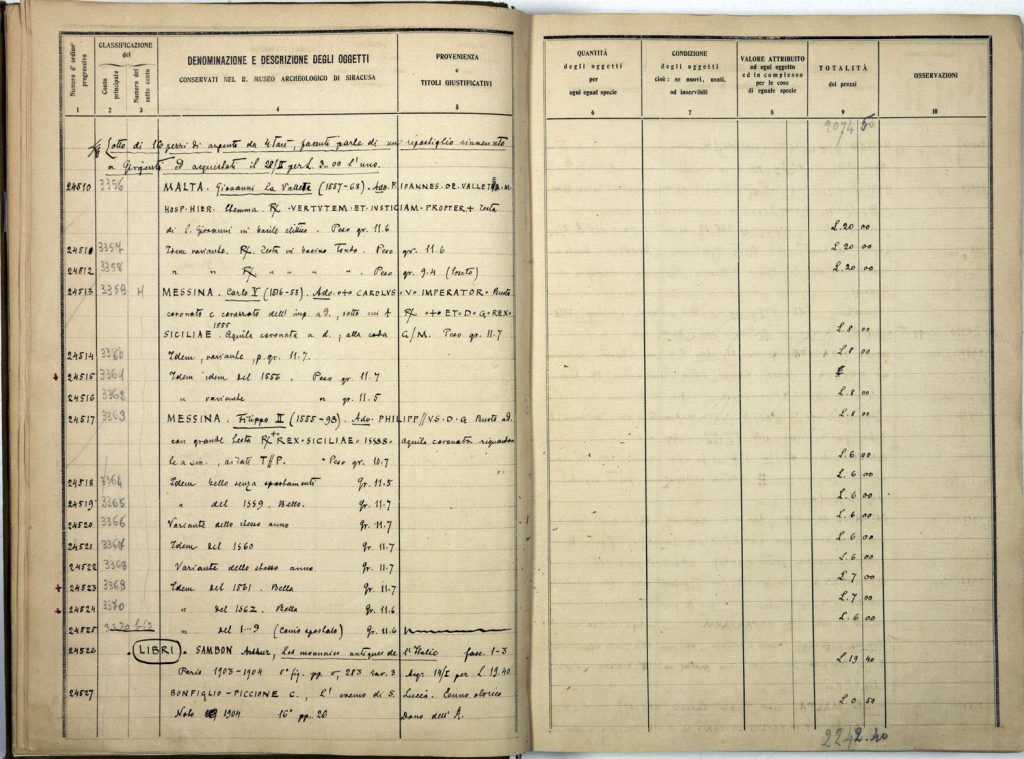 Numero d'ordine progressivo
CLASSIFICAZIONE
del
Costo principale
Numero del sotto costo
DENOMINAZIONE E DESCRIZIONE DEGLI OGGETTI
CONSERVATI NEL R. MUSEO ARCHEOLOGICO DI SIRACUSA
PROVENIENZA
e
TITOLI GIUSTIFICATIVI
1 2 3 4 5
Lotto di 16 pezzi di argento da 4 tarì, facenti parte di un ripostiglio rinvenuto
a Girgenti ed acquistati il 28/II per L. 3.00 l'uno.
24510 3356 MALTA. Giovanni La Valletta (1557-68). Ad. F. IOANNES. DE. VALLETTA. M
HOSP. HIER. Stemma. R/ . VERTVTEM. ET. IVSTICIAM. PROPTER + Testa
di S. Giovanni in bacile ellittico. Peso gr. 11.6
24511 3357 Idem variante. R/ Testa in bacino tondo. Peso gr. 11.6
24512 3358 " " R/ " " " ". Peso gr. 9.4
24513 3359 M MESSINA. Carlo V (1516-55). Ad. o+o CAROLVS o V o IMPERATOR o Busto
coronato e corazzato dell' imp. a d., sotto cui 4 R/ o+o ET o D o G o REX o
SICILIAE 1555 Aquila coronata a d., alla coda G/M. Peso gr. 11.7
24514 3360 Idem, variante, p. gr. 11.7.
+ 24515 3361 Idem idem del 1556. Peso gr. 11.7
24516 3362 " variante " gr. 11.5
24517 3363 MESSINA. Filippo II (1555-98). Ad. PHILIPP//VS. D. G Busto a d.
con grande testa R/ + REX. SICILIAE o 1558 aquila coronata
le a sin., ai lati T//P. Peso gr. 10.7
24518 3364 Idem bello senza spostamento Gr. 11.5
24519 3365 " del 1559. Bello. Gr. 11.7
24520 3366 Variante dello stesso anno Gr. 11.7
24521 3367 Idem del 1560 Gr. 11.7
24522 3368 Variante dello stesso anno Gr. 11.7
+ 24523 3369 Idem del 1561. Bella Gr. 11.7
+ 24524 3370 " del 1562. Bella Gr. 11.6
24525 3370 bis " del 1--9 (conio spostato) Gr. 11.6
24526 LIBRI. SAMBON Arthur, Les monnaies antiques de l'Italie fasc. 1-3
Paris 1903-1904 8° fig. pp. V, 283 tav. 3 Acq. 14/I per L. 19.40
24527 BONFIGLIO-PICCIONE C., L' eremo di S. Luccà. Cenno storico
Noto 1904 16° pp. 20 Dono dell' A.
QUANTITÀ
degli oggetti
per
ogni egual specie
CONDIZIONE
degli oggetti
cioè: se nuovi, usati,
od inservibili
VALORE ATTRIBUITO
ad ogni oggetto
ed in complesso
per le cose
di eguale specie
TOTALITÀ
dei prezzi
OSSERVAZIONI
6 7 8 9 10
2074 50
L. 20 00
L. 20 00
L. 20 00
L. 8 00
L. 8 00
L. 8 00
L. 8 00
L. 6 00
L. 6 00
L. 6 00
L. 6 00
L. 6 00
L. 6 00
L. 7 00
L. 7 00
L. 6 00
L. 19 40
L. 0 50
2242.40